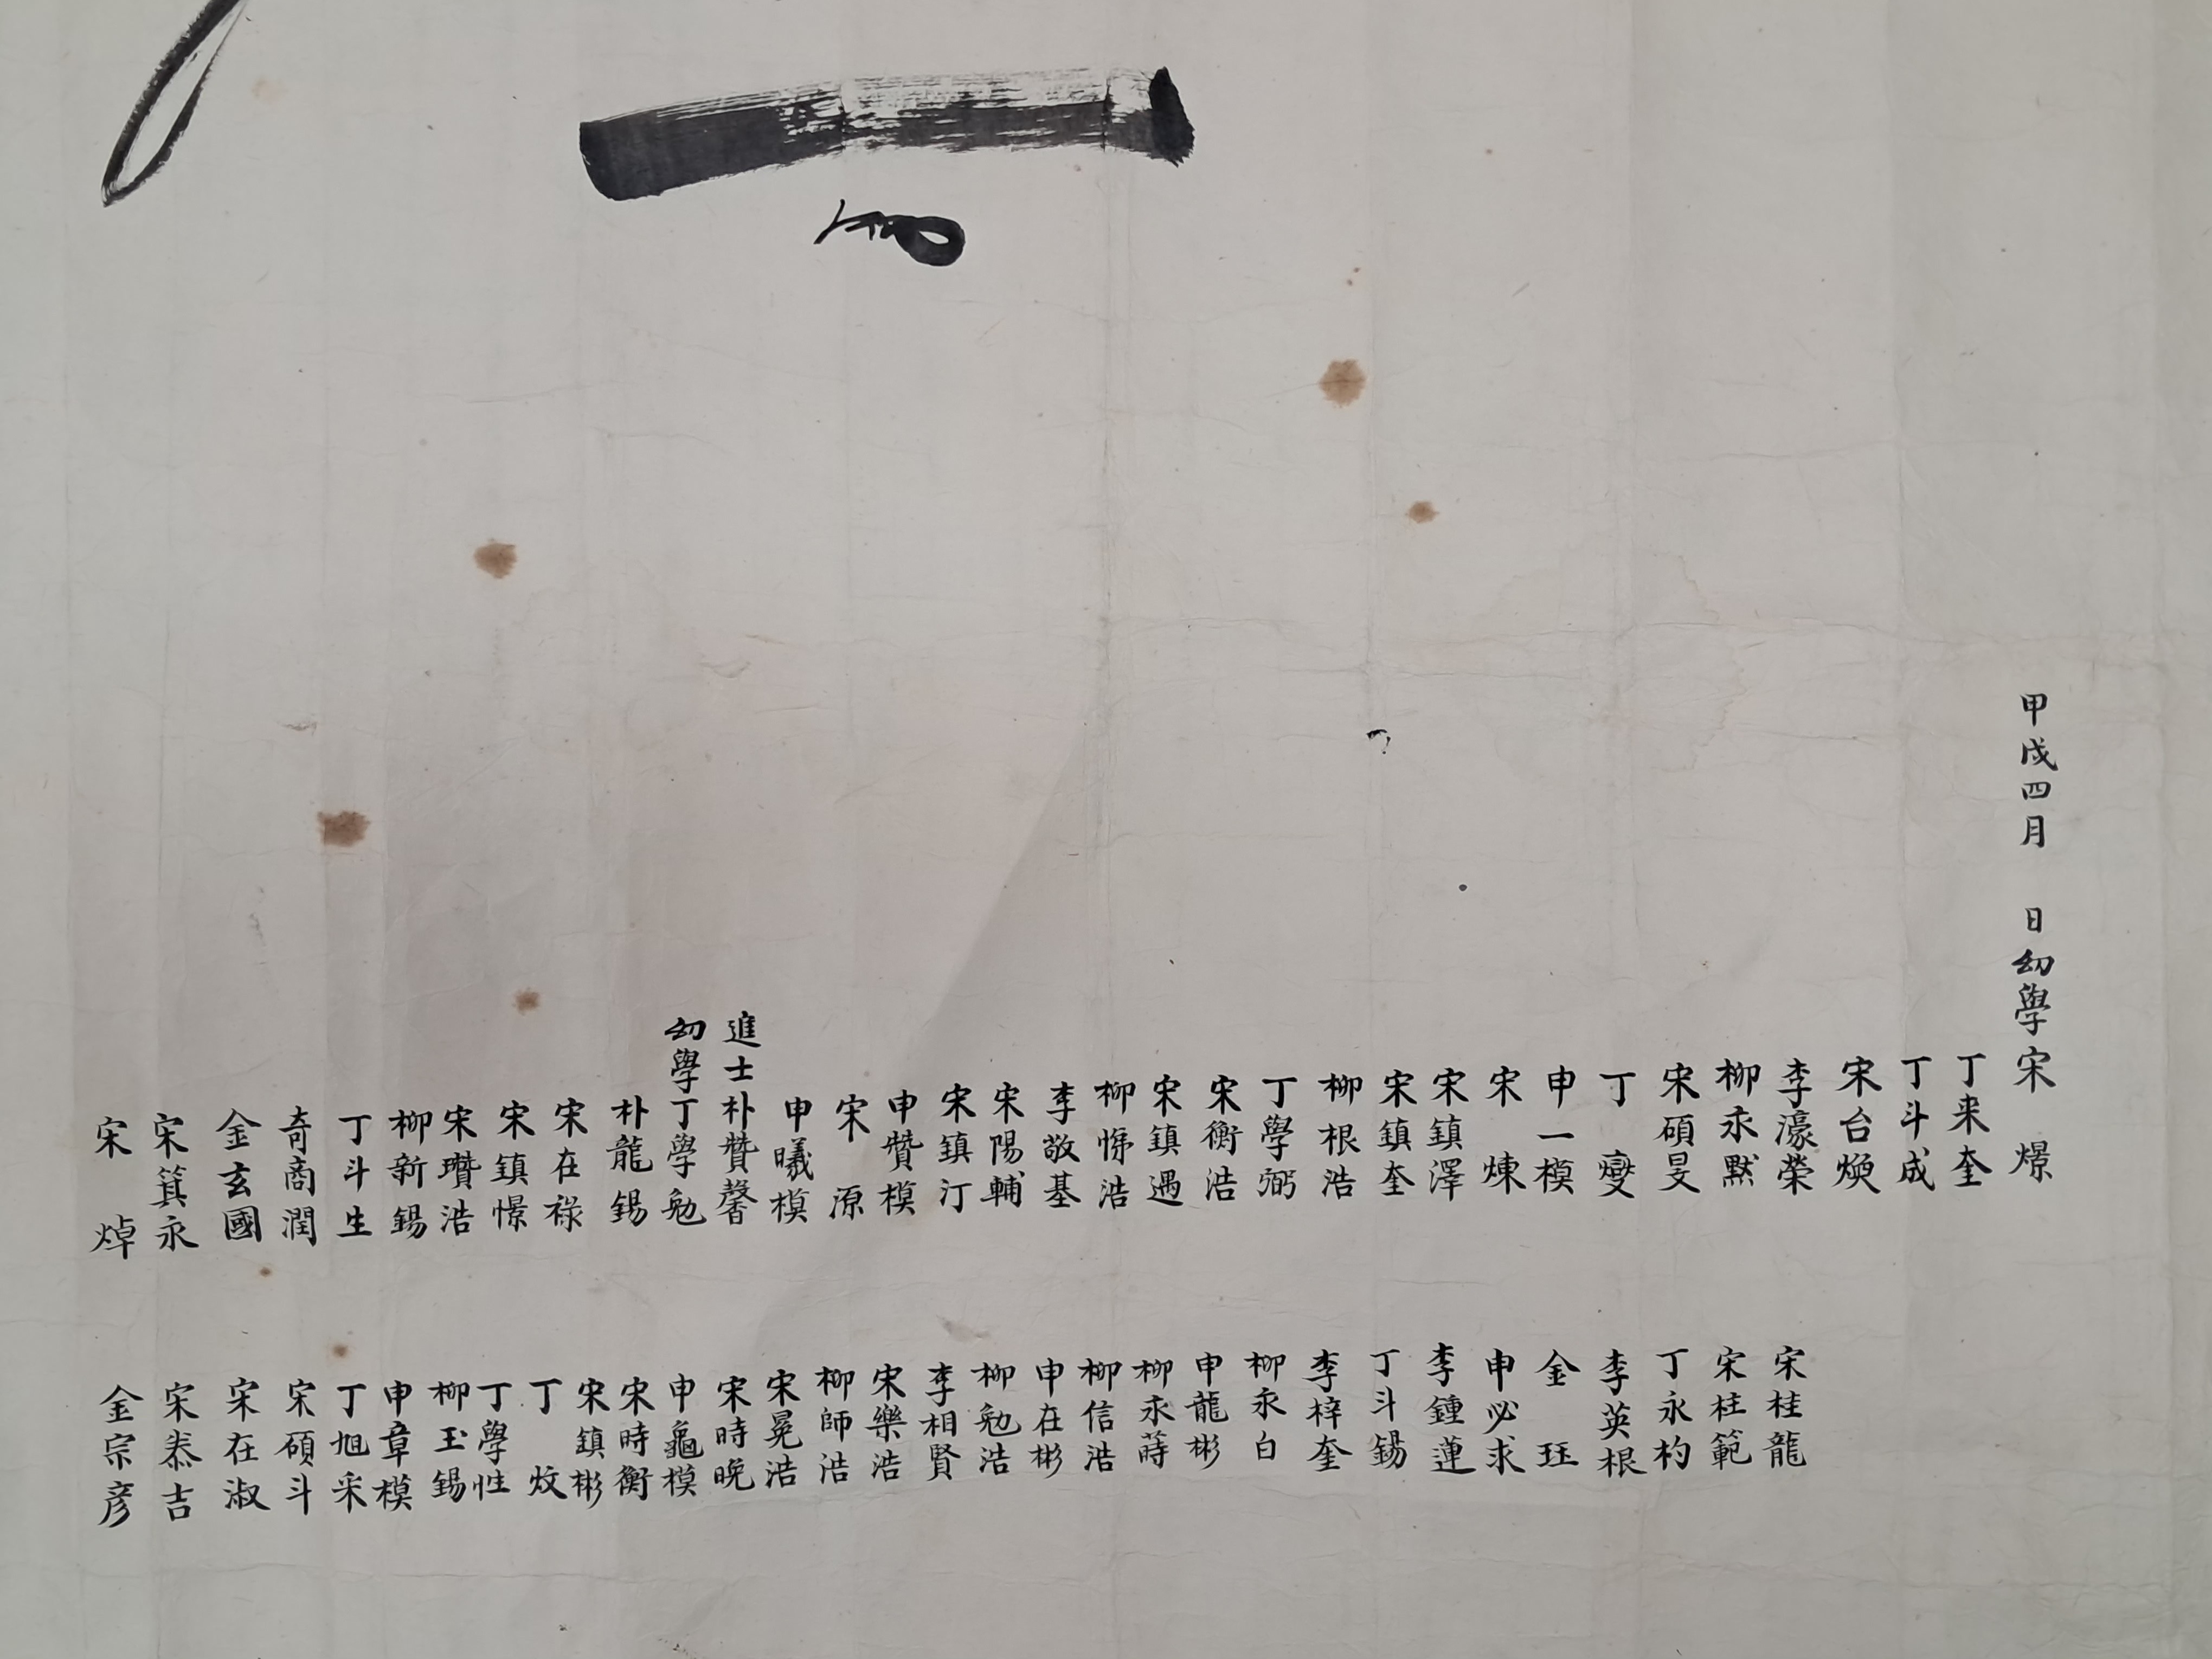 甲戌四月 日幼學宋 㬌
丁来奎
丁斗成
宋台煥
李濠榮
柳永默
宋碩旻
丁 燮
申一模
宋 煉
宋鎮澤
宋鎮奎
柳根浩
丁學弼
宋衡浩
宋鎮遇
柳悌浩
李敬基
宋陽輔
宋鎮汀
申贊模
宋 源
申曦模
進士朴贊馨
幼學丁學勉
朴龍錫
宋在祿
宋鎮憬
宋瓚浩
柳新錫
丁斗生
奇商潤
金玄國
宋箕永
宋 焯
宋桂龍
宋柱範
丁永杓
李英根
金 珏
申必求
李鍾蓮
丁斗錫
李梓奎
柳永白
申龍彬
柳永蒔
柳信浩
申在彬
柳勉浩
李相賢
宋樂浩
柳師浩
宋晃浩
宋時晚
申龜模
宋時衡
宋鎮彬
丁 炆
丁學性
柳玉錫
申章模
丁旭采
宋碩斗
宋在淑
宋泰吉
金宗彦